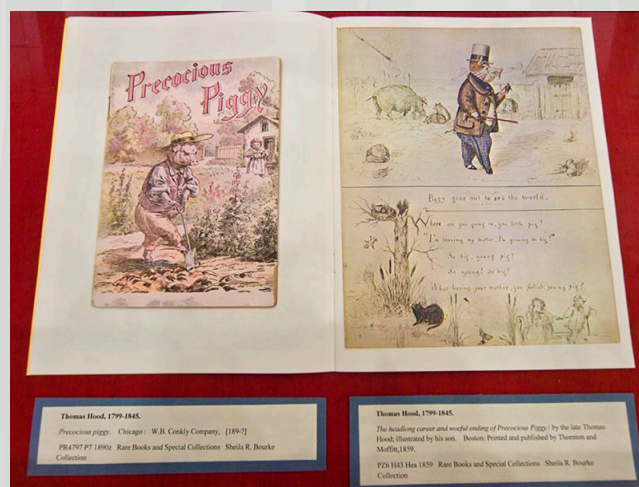 Precocious
Piggy
Piggy goes out to see the world.
Where are you going to, you little pig?
"I'm leaving my mother, I'm growing so big!"
So big, young pig!
So young! So big!
What leaving your mother, you foolish young pig?
Thomas Hood, 1799-1845.
Precocious piggy. Chicago : W.B. Conkly Company, [189-?]
PR4797 P7 1890z Rare Books and Special Collections Sheila R. Bourke
Collection
Thomas Hood, 1799-1845.
The headlong career and woeful ending of Precocious Piggy / by the late Thomas
Hood; illustrated by his son. Boston; Printed and published by Thornton and
Moffitt,1859.
PZ6 H43 Hea 1859 Rare Books and Special Collections Sheila R. Bourke
Collection